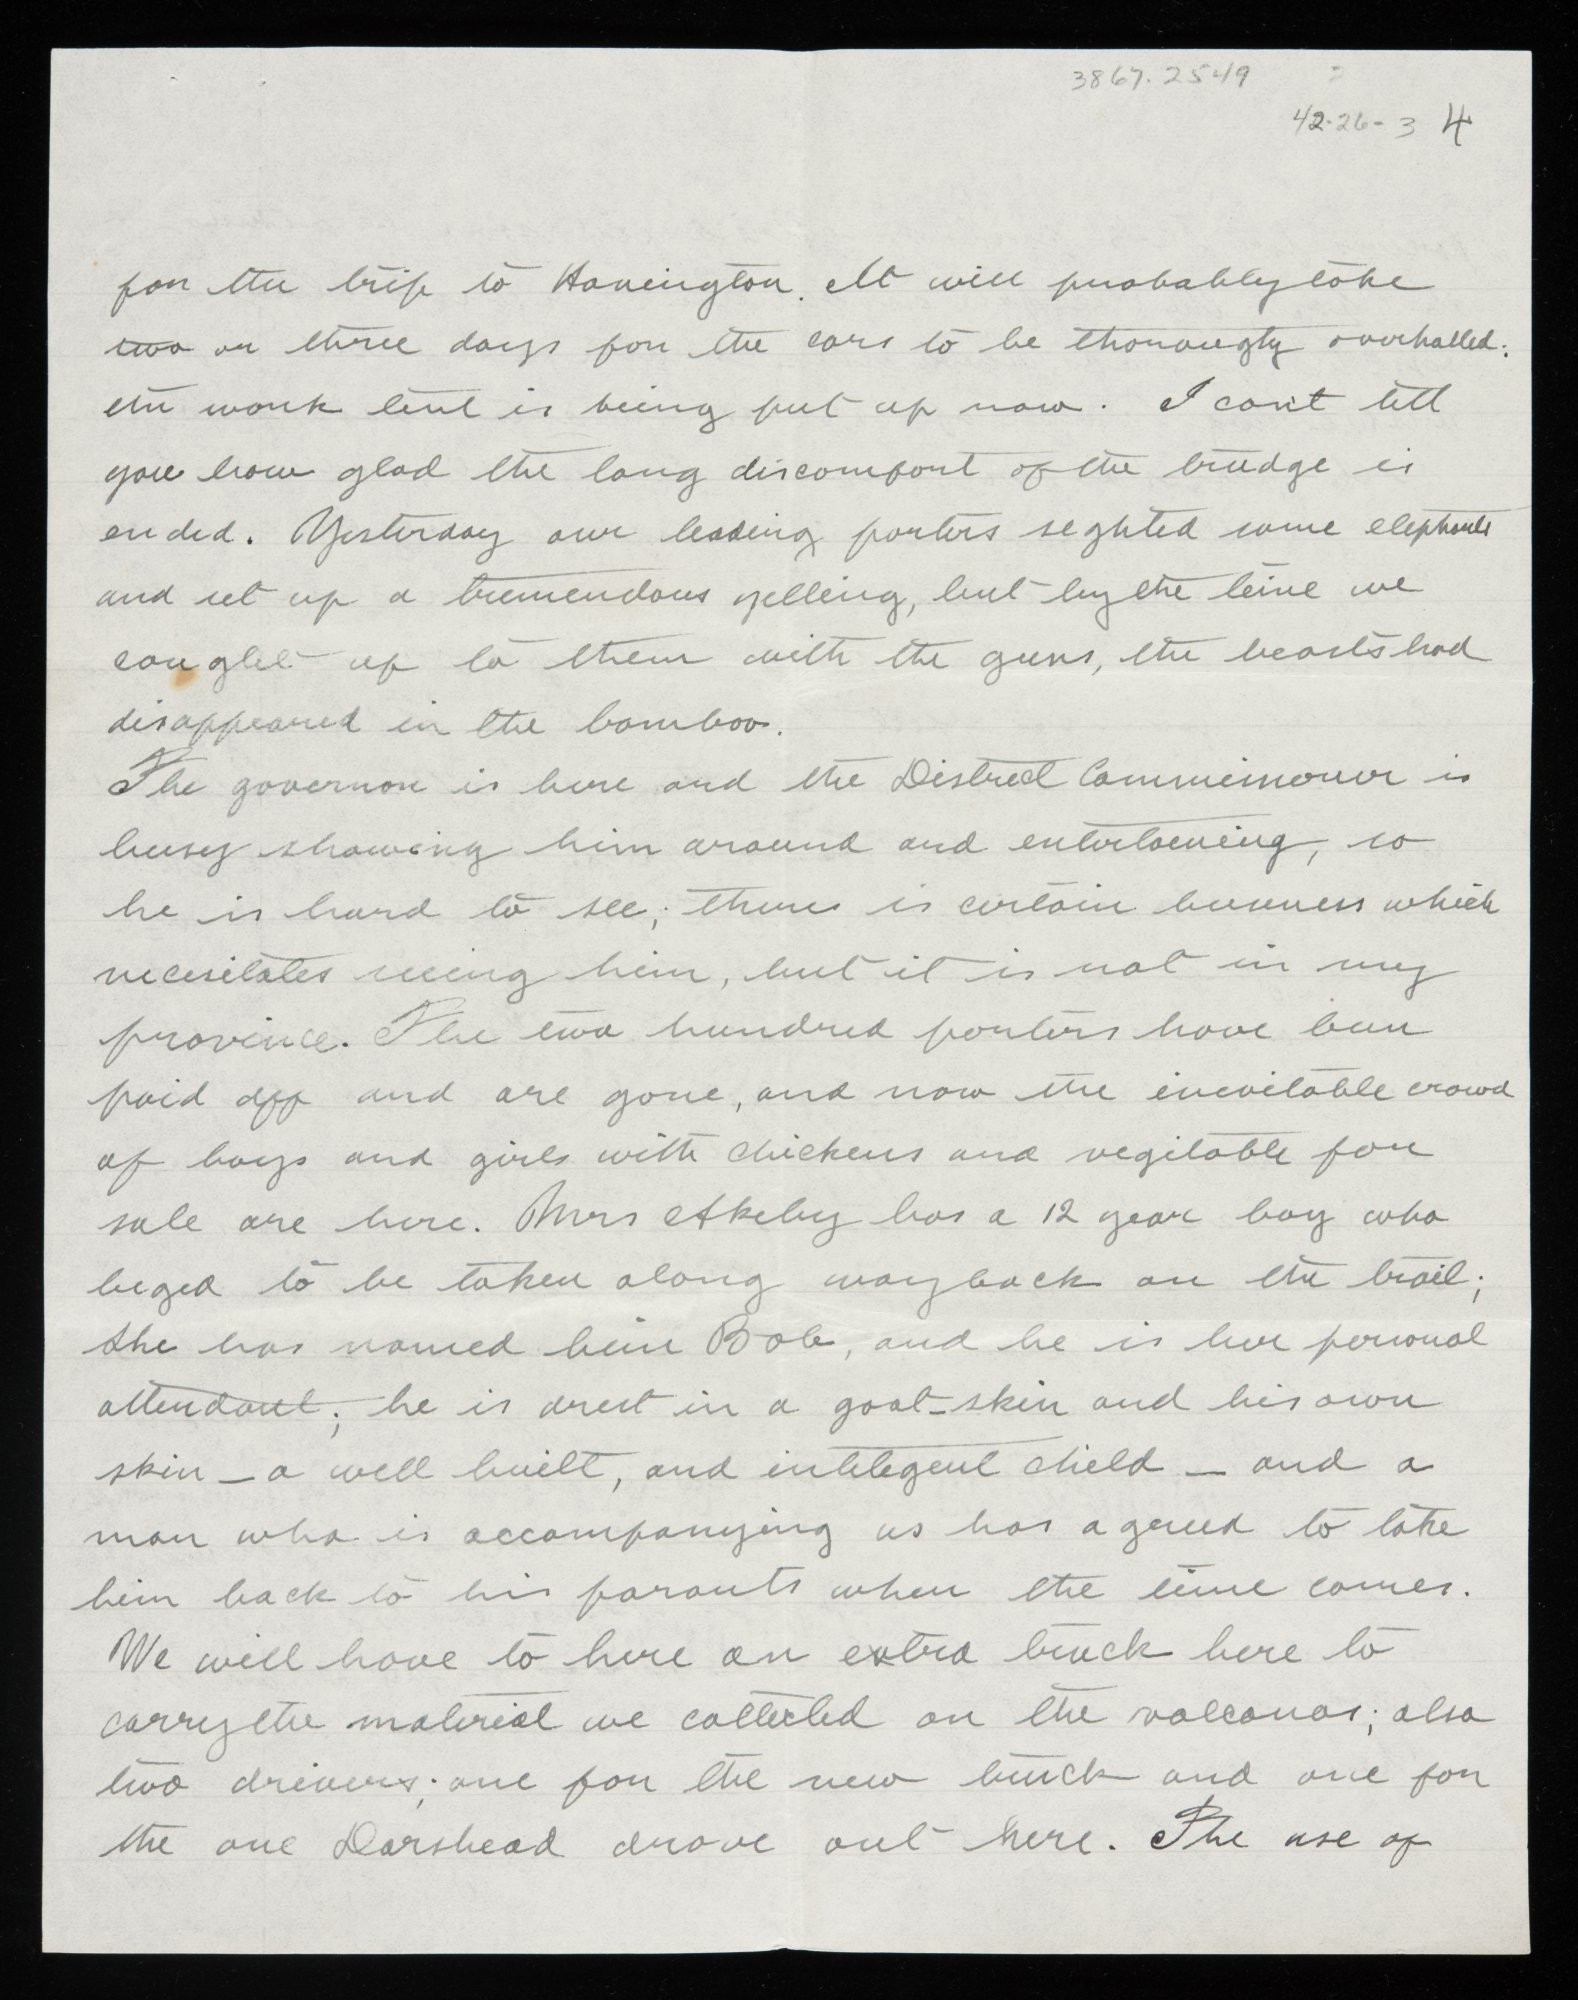 3867.2549
42-26-3 4
for the trip to Hanington. It will probably take
two or three days for the cars to be thorougty overhalled;
the work tent is being put up now. I can't tell
you how glad the long discomfort of the trudge is
ended. Yesterday our leading porters seghted some elephants
and set up a tremendous yelling, but by the time we
caught up to them with the guns, the beasts had
disappeared in the bamboo.
The governor is here and the District Commimoner is
busy showing him around and entertaening, so
he is hard to see; there is certain business which
necesitates seeing him, but it is not in my
province. The two hundred porters have been
paid off and are gone, and now the inevitable crowd
of boys and girls with chickens and vegitable for
sale are here. Mrs Akeley has a 12 year boy who
beged to be taken along wayback on the trail;
she has named him Bob, and he is her personal
attendant; he is drest in a goat-skin and his own
skin – a well built, and intelegent child – and a
man who is accompanying us has agreed to take
him back to his parants when the time comes.
We will have to hire an extra truck here to
carry the material we collected on the volcanos; also
two drivers; one for the new truck and one for
the one Darshead drove out here. The use of